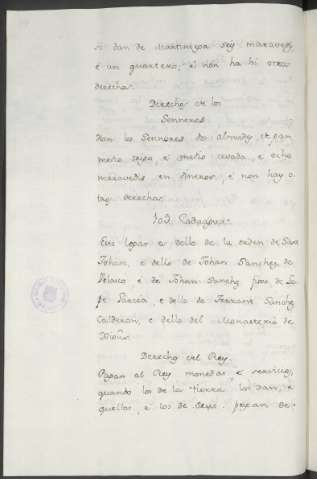 si dan de Martiniega seys maravedis,
é un quartero, é non ha hi otros
derechos.
Derechos de los
Sennores.
Dan los Sennores do almudes, et pan
medio trigo, é medio cevada, é ocho
maravedis en dineros, é non hay o
tros derechos.
Este logar es dello de la orden de Sant
Johan, é dello de Johan Sanchez de
Velasco é de Johan Sanchz fijos de Lo
pe Garcia, é dello de Ferrant Sanchz
Calderon, é dello del Monasterio de
Derechos del Rey.
Pagan al Rey monedas é servicios,
quando los de la tierra los dan, é
aquellos, é los de